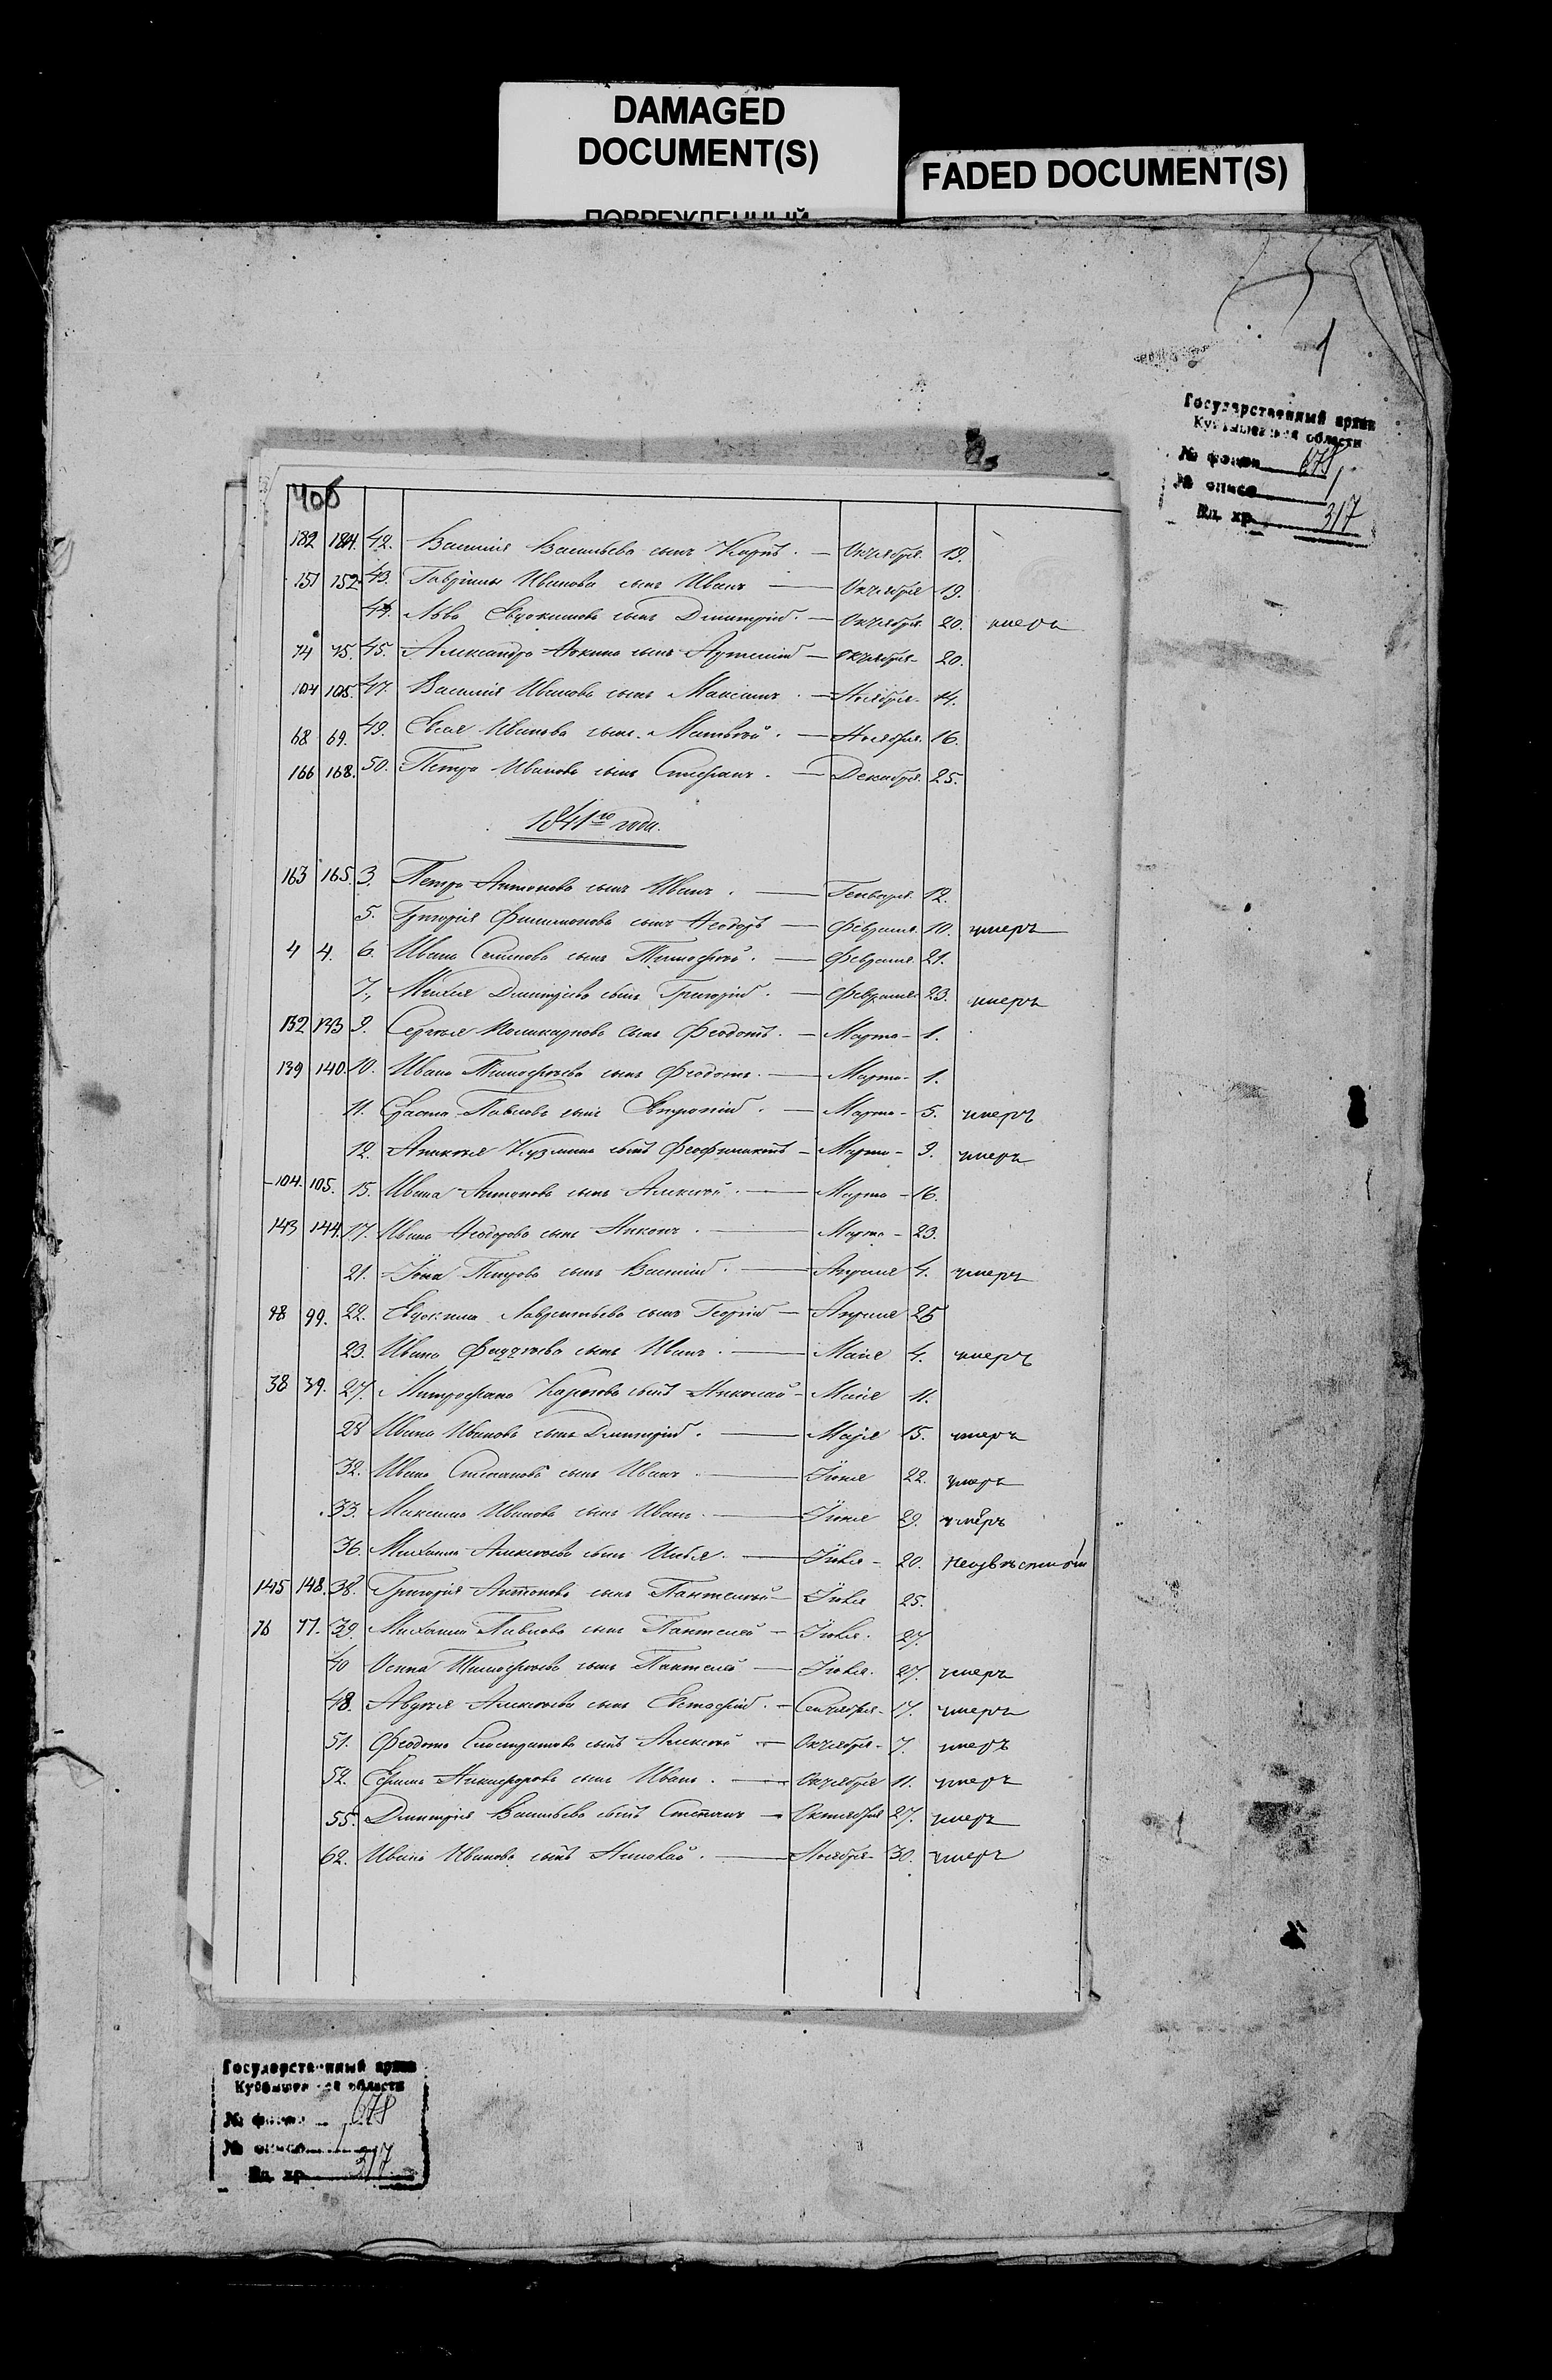 DAMAGED
DOCUMENT(S)
FADED DOCUMENT(S)
ПОВРЕЖДЕННЫЙ
1
Государственный архив
Куйбышевская области
№ фонда 678
№ описи 1
Ед. хр. 317
406
182 184. 42. Василія Васильева сынъ Карпъ. — Октября. 19.
151 152 43. Гаврилы Иванова сынъ Иванъ — Октября 19.
44. Льва Евдокимова сынъ Дмитрій. — Октября. 20. умеръ
74 75. 45. Александра сынъ — Октября — 20.
104 105. 47. Василія Иванова сынъ Максимъ. — Ноября — 14.
68 69. 49. Иванова сынъ Матвѣй. — Ноября. 16.
166 168. 50. Петра Иванова сынъ Стефанъ. — Декабря. 25.
1841го года.
163 165. 3. Петра Антонова сынъ Иванъ. — Генваря. 12.
5. Григорія Филимонова сынъ Ѳеодоръ — Февраля. 10. умеръ
4 4. 6. Ивана Семенова сынъ Тимофей. — Февраля. 21.
7. Дмитріева сынъ Григорій. — Февраля 23. умеръ
132 133 9. Сергѣя Поликарпова сынъ Феодотъ. — Марта — 1.
139 140. 10. Ивана Тимофѣева сынъ Феодотъ. — Марта — 1.
11. Павлова сынъ — Марта — 5. умеръ
12. Кузмина сынъ Феофилактъ — Марта — 9. умеръ
104. 105. 15. Ивана Антонова сынъ Алексѣй. — Марта — 16.
143 144. 17. Ивана Ѳеодорова сынъ Никонъ. — Марта — 23.
21. Петрова сынъ Василій. — Апреля 4. умеръ
98 99. 22. Евдокима Лаврентьева сынъ Георгій — Апреля 25
23. Ивана сынъ Иванъ. — Маія 4. умеръ
38 39. 27. Митрофана сынъ Николай — Маія 11.
28 Ивана Иванова сынъ Дмитрій. — Маія 15. умеръ
32. Ивана Степанова сынъ Иванъ. — Іюня 22. умеръ
33. Максима Иванова сынъ Иванъ. — Іюня 29. умеръ
36. Михаила Алексѣева сынъ Илья. — Іюля — 20. неизвѣстно
145 148. 38. Григорія Антонова сынъ Пантелей — Іюля 25.
76 77. 39. Михаила Павлова сынъ Пантелей — Іюля. 27.
40 Осипа Тимофѣева сынъ Пантелей — Іюля. 27. умеръ
48. Авдѣя Алексѣева сынъ Евстафій. — Сентября — 17. умеръ
51. Феодота сынъ Алексѣй — Октября — 7. умеръ
52. Никифорова сынъ Иванъ. — Октября 11. умеръ
55. Дмитрія Васильева сынъ Степанъ — Октября 27. умеръ
62. Ивана Иванова сынъ Николай. — Ноября — 30. умеръ
Государственный архив
Куйбышевская области
№ фонда 678
№ описи 1
Ед. хр. 317